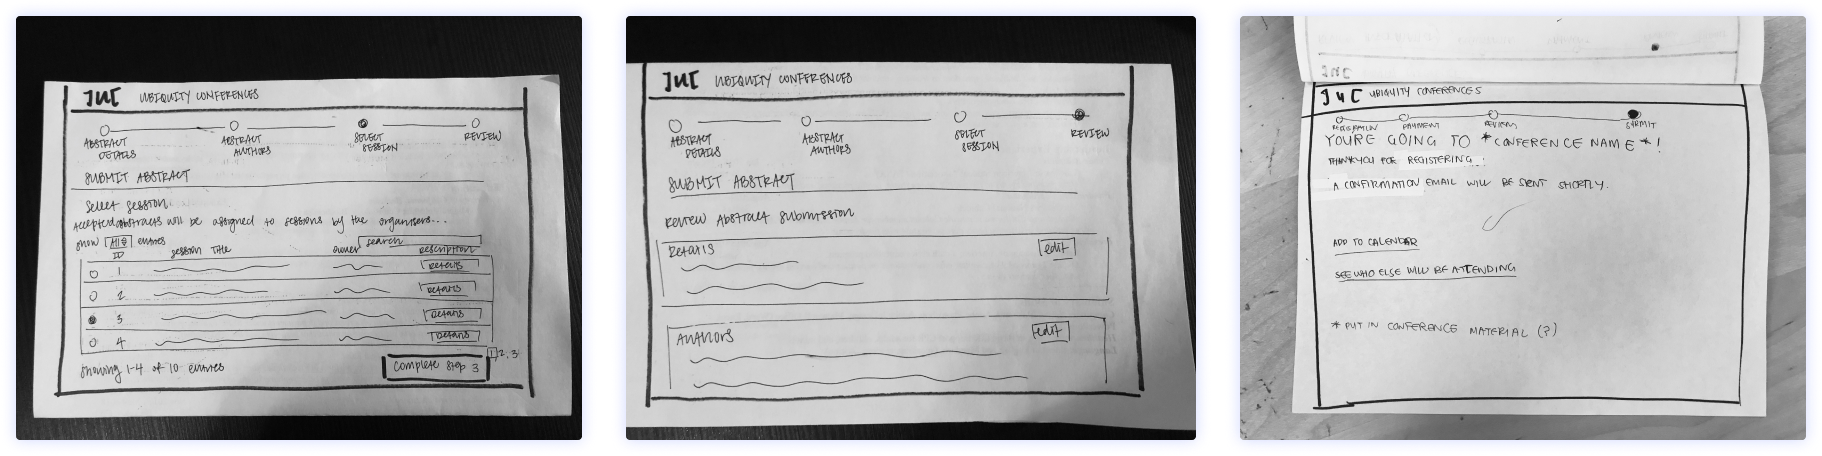 UBIQUITY CONFERENCES
ABSTRACT DETAILS
ABSTRACT AUTHORS
SELECT SESSION
REVIEW
SUBMIT ABSTRACT
Select session
Accepted abstracts will be assigned to sessions by the organisers...
show All entries
search
ID session Title owner Description
1 Details
2 Details
3 Details
4 Details
showing 1-4 of 10 entries
1 2, 3
Complete step 3
UBIQUITY CONFERENCES
ABSTRACT DETAILS
ABSTRACT AUTHORS
SELECT SESSION
REVIEW
SUBMIT ABSTRACT
REVIEW Abstract submission
Details edit
AUTHORS edit
UBIQUITY CONFERENCES
REGISTRATION PAYMENT REVIEW SUBMIT
YOURE GOING TO *CONFERENCE NAME*!
THANKYOU FOR REGISTERING!
A CONFIRMATION EMAIL WILL BE SENT SHORTLY.
ADD TO CALENDAR
SEE WHO ELSE WILL BE ATTENDING
* PUT IN CONFERENCE MATERIAL (?)